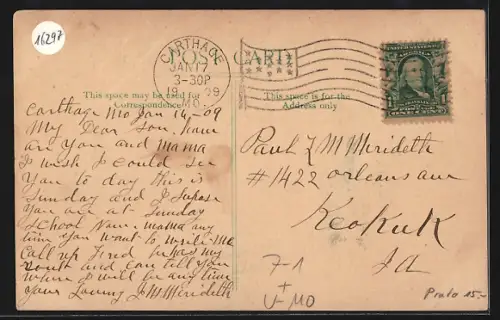 16297
POST CARD
CARTHAGE
JAN 17
3-30P
19 09
MO.
This space may be used for
Correspondence
This space is for the
Address only
Carthage Mo Jan 16 - 09
My Dear Son, how
are you and mama
I wish I could see
you to day this is
Sunday and I supose
you are at Sunday
School Now. mama any
time you want to write me
Call up Fred he has my
rout and can tell you
where I will be any time
your Loving J M Merideth
Paul L M Merideth
#1422 orleans ave
Keokuk
IA
7-1
+
V-MO
15.-